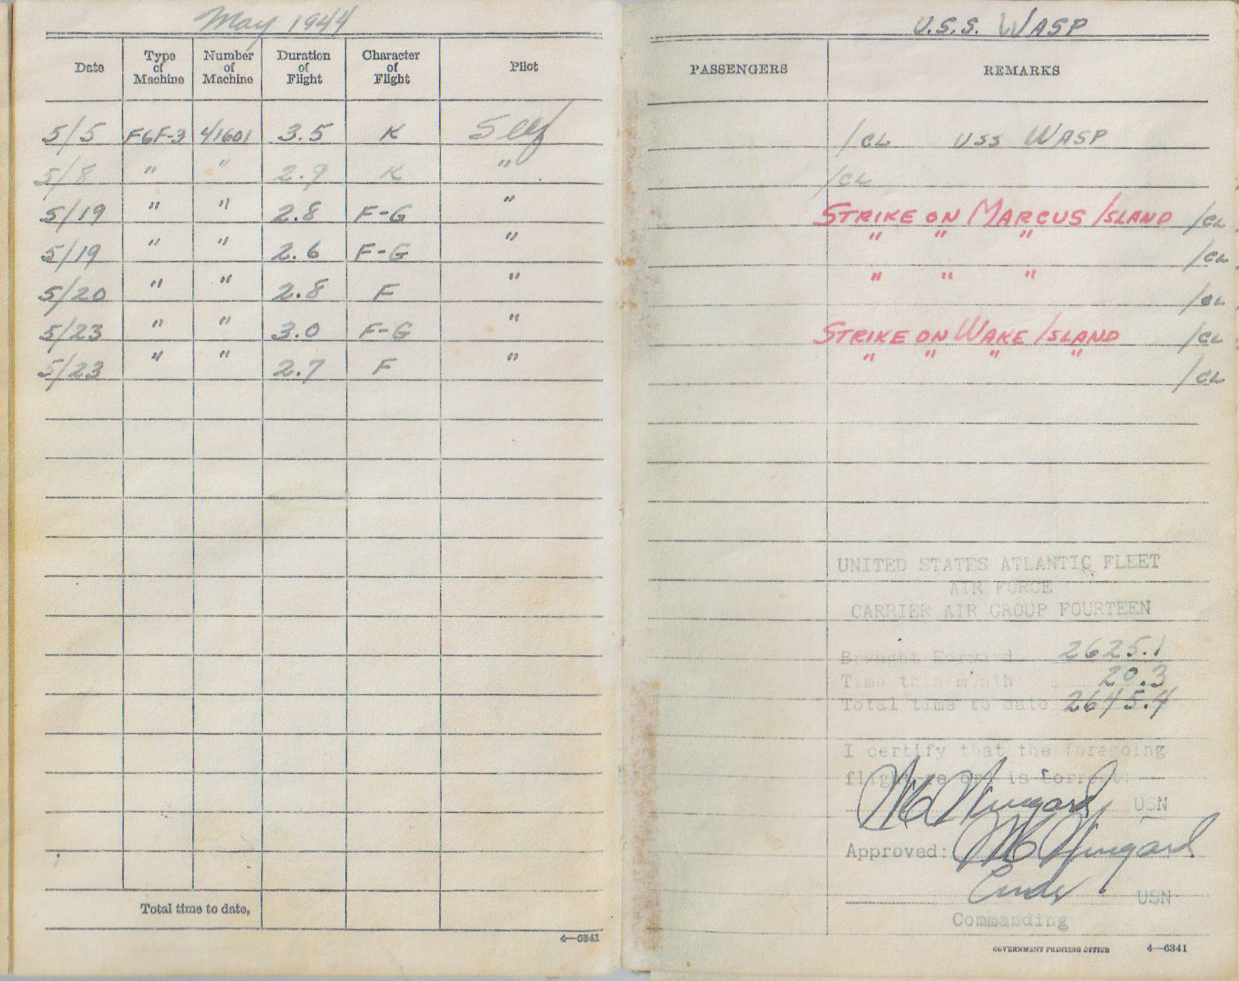 May 1944
Date Type of Machine Number of Machine Duration of Flight Character of Flight Pilot
5/5 F6F-3 41601 3.5 K Self
5/8 " " 2.9 K "
5/19 " " 2.8 F-G "
5/19 " " 2.6 F-G "
5/20 " " 2.8 F "
5/23 " " 3.0 F-G "
5/23 " " 2.7 F "
Total time to date,
4—6341
U.S.S. WASP
PASSENGERS REMARKS
1CL USS WASP
1CL
STRIKE ON MARCUS ISLAND 1CL
" " " 1CL
" " " 1CL
STRIKE ON WAKE ISLAND 1CL
" " " " 1CL
UNITED STATES ATLANTIC FLEET
AIR FORCE
CARRIER AIR GROUP FOURTEEN
Brought Forward 2625.1
Time this month 20.3
Total time to date 2645.4
I certify that the foregoing
flight record is correct.
USN
Approved:
Cmdr USN
Commanding
GOVERNMENT PRINTING OFFICE 4—6341